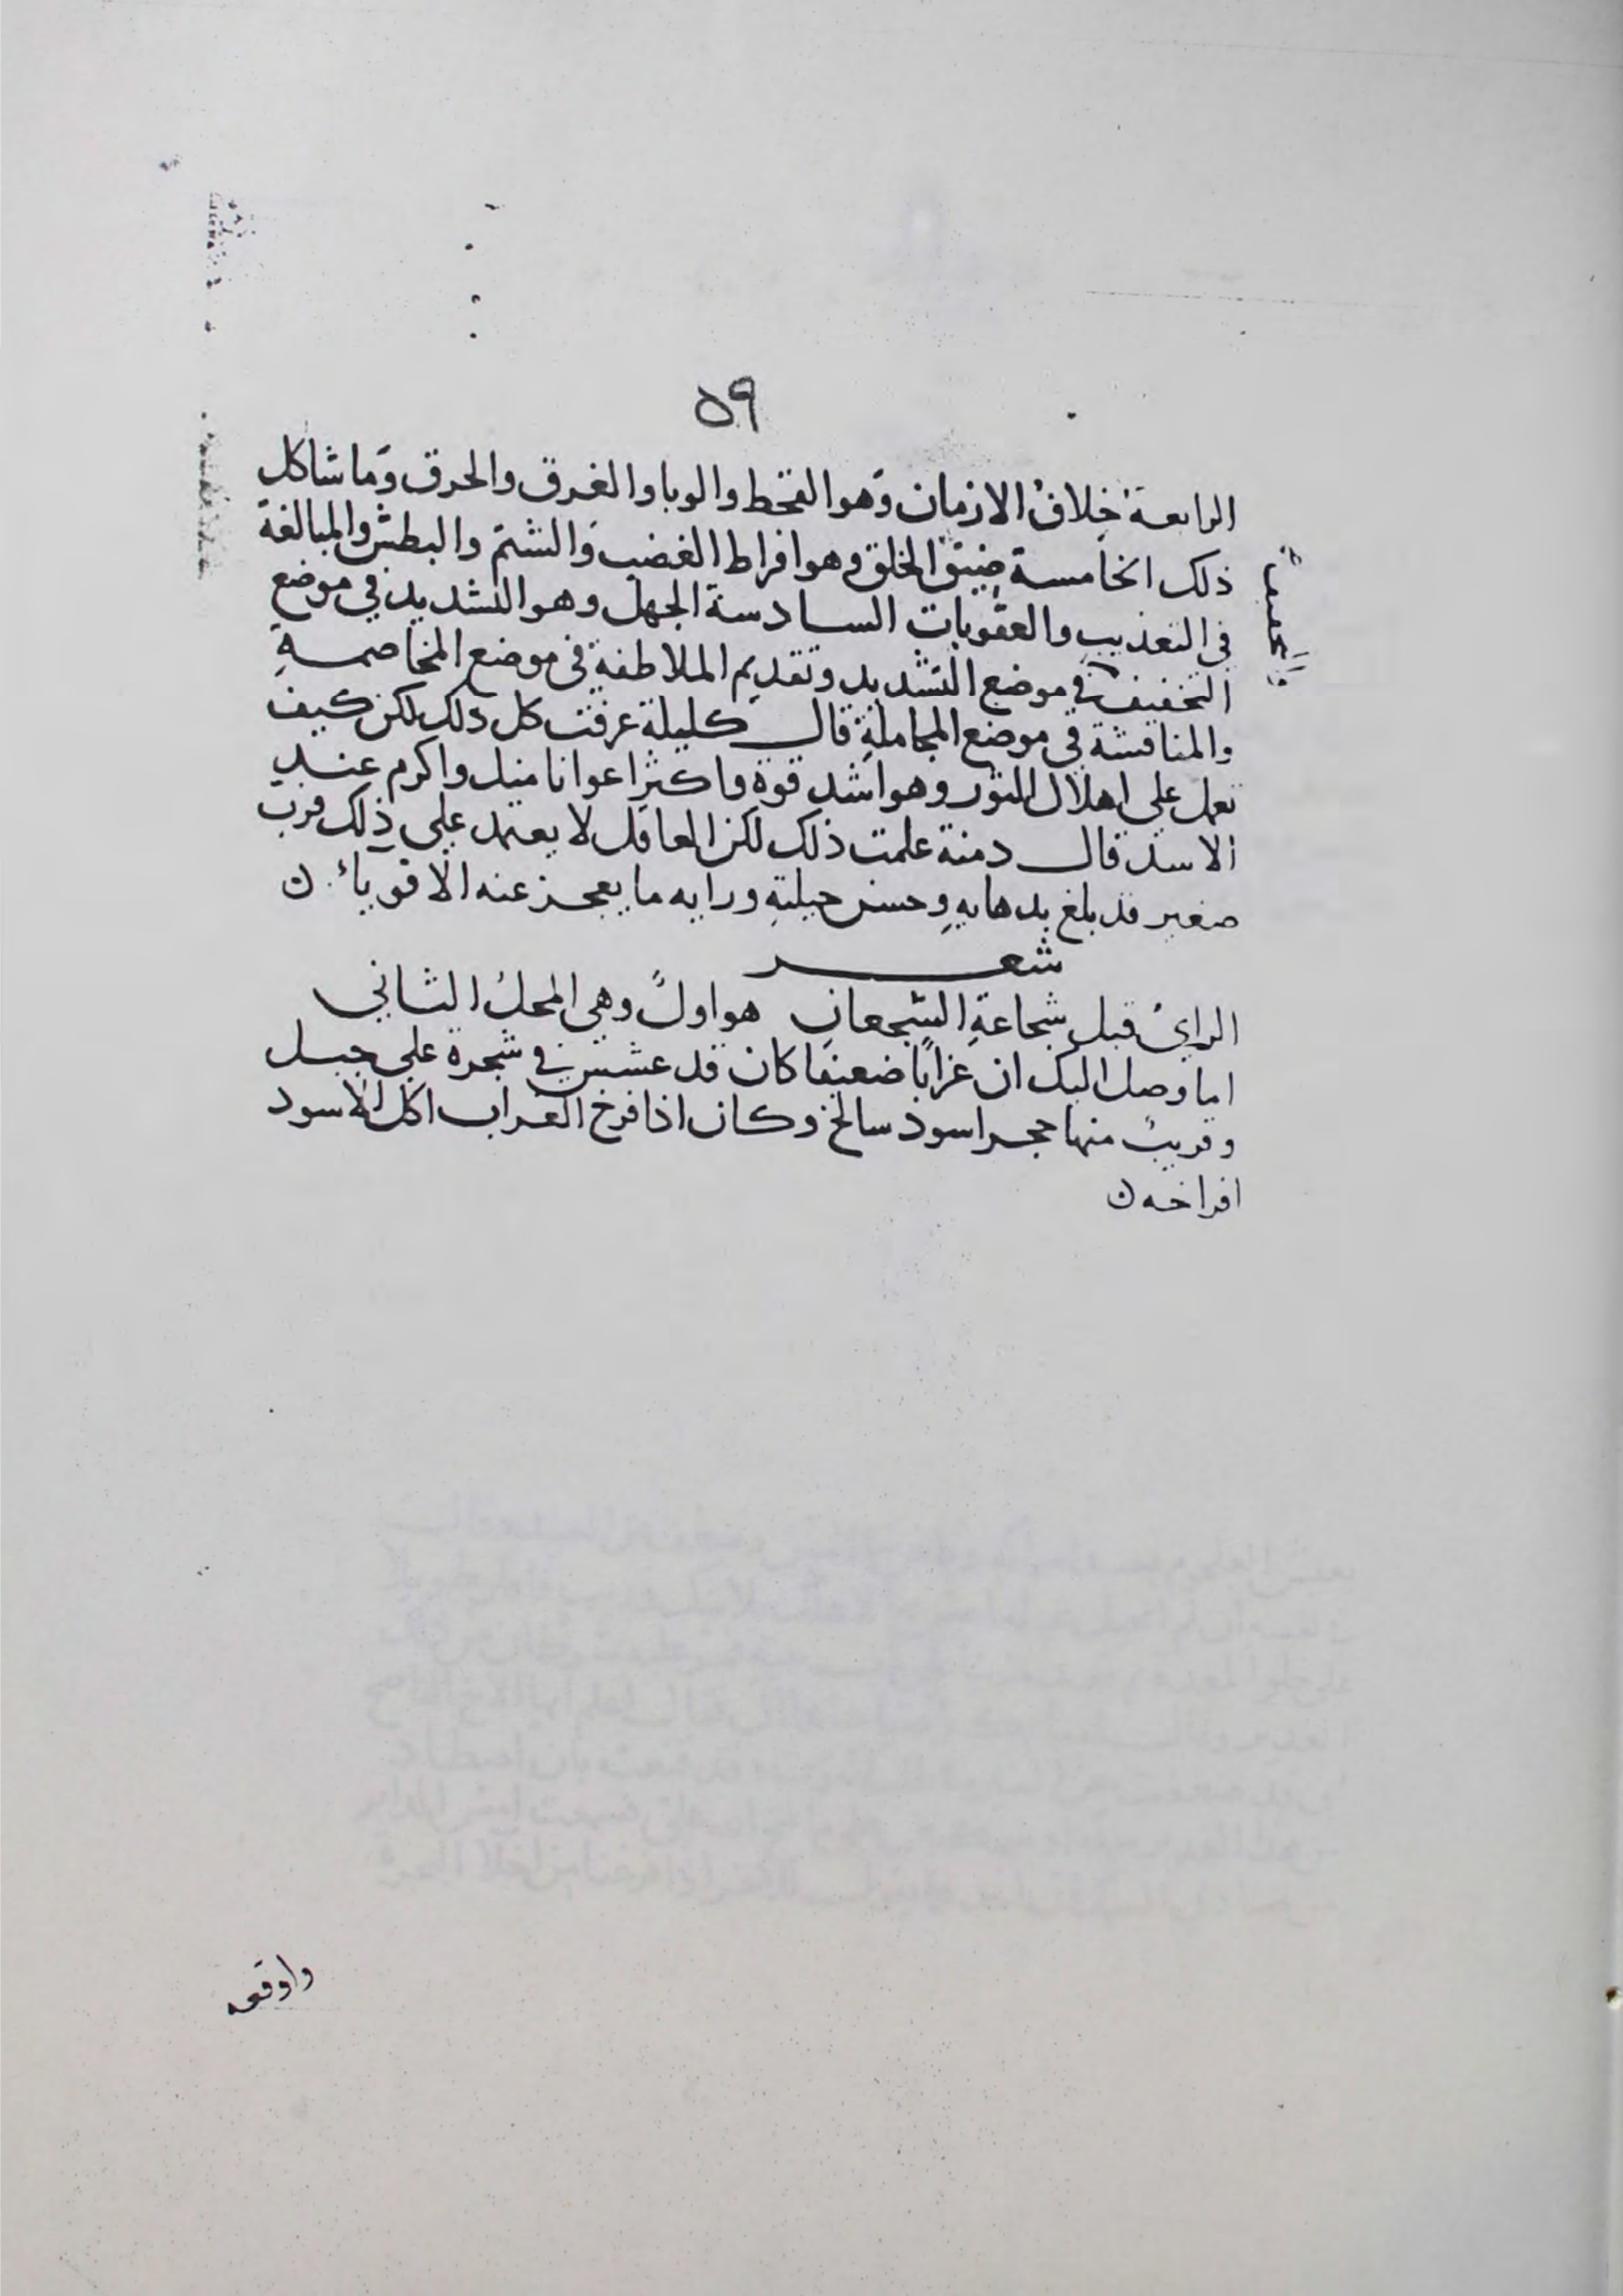 ٥٩
الرابعة خلاف الازمان وهو القحط والوبا والغرق والحرق وما شاكل
ذلك الخامسة ضيق الخلق وهو افراط الغضب والشتم والبطش والمبالغة
في التعذيب والعقوبات السادسة الجهل وهو التشديد في موضع
التخفيف في موضع التشديد وتقديم الملاطفة في موضع المخاصمة
والمناقشة في موضع المجاملة قال كليلة عرفت كل ذلك لكن كيف
تعمل على اهلال الثور وهو اشد قوة واكثر اعوانا منك واكرم عند
الاسد قال دمنة علمت ذلك لكن العاقل لا يعتمد على ذلك فرب
صغير قد بلغ بدهايه وحسن حيلته ورايه ما يعجز عنه الاقوياء ن
شعر
الراي قبل شجاعة الشجعان هو اول وهي المحل الثاني
اما وصل اليك ان غرابا ضعيفا كان قد عشش في شجرة على جبل
وقريب منها حجر اسود سالخ وكان اذا فرخ الغراب اكل الاسود
افراخه ن
واوقعه